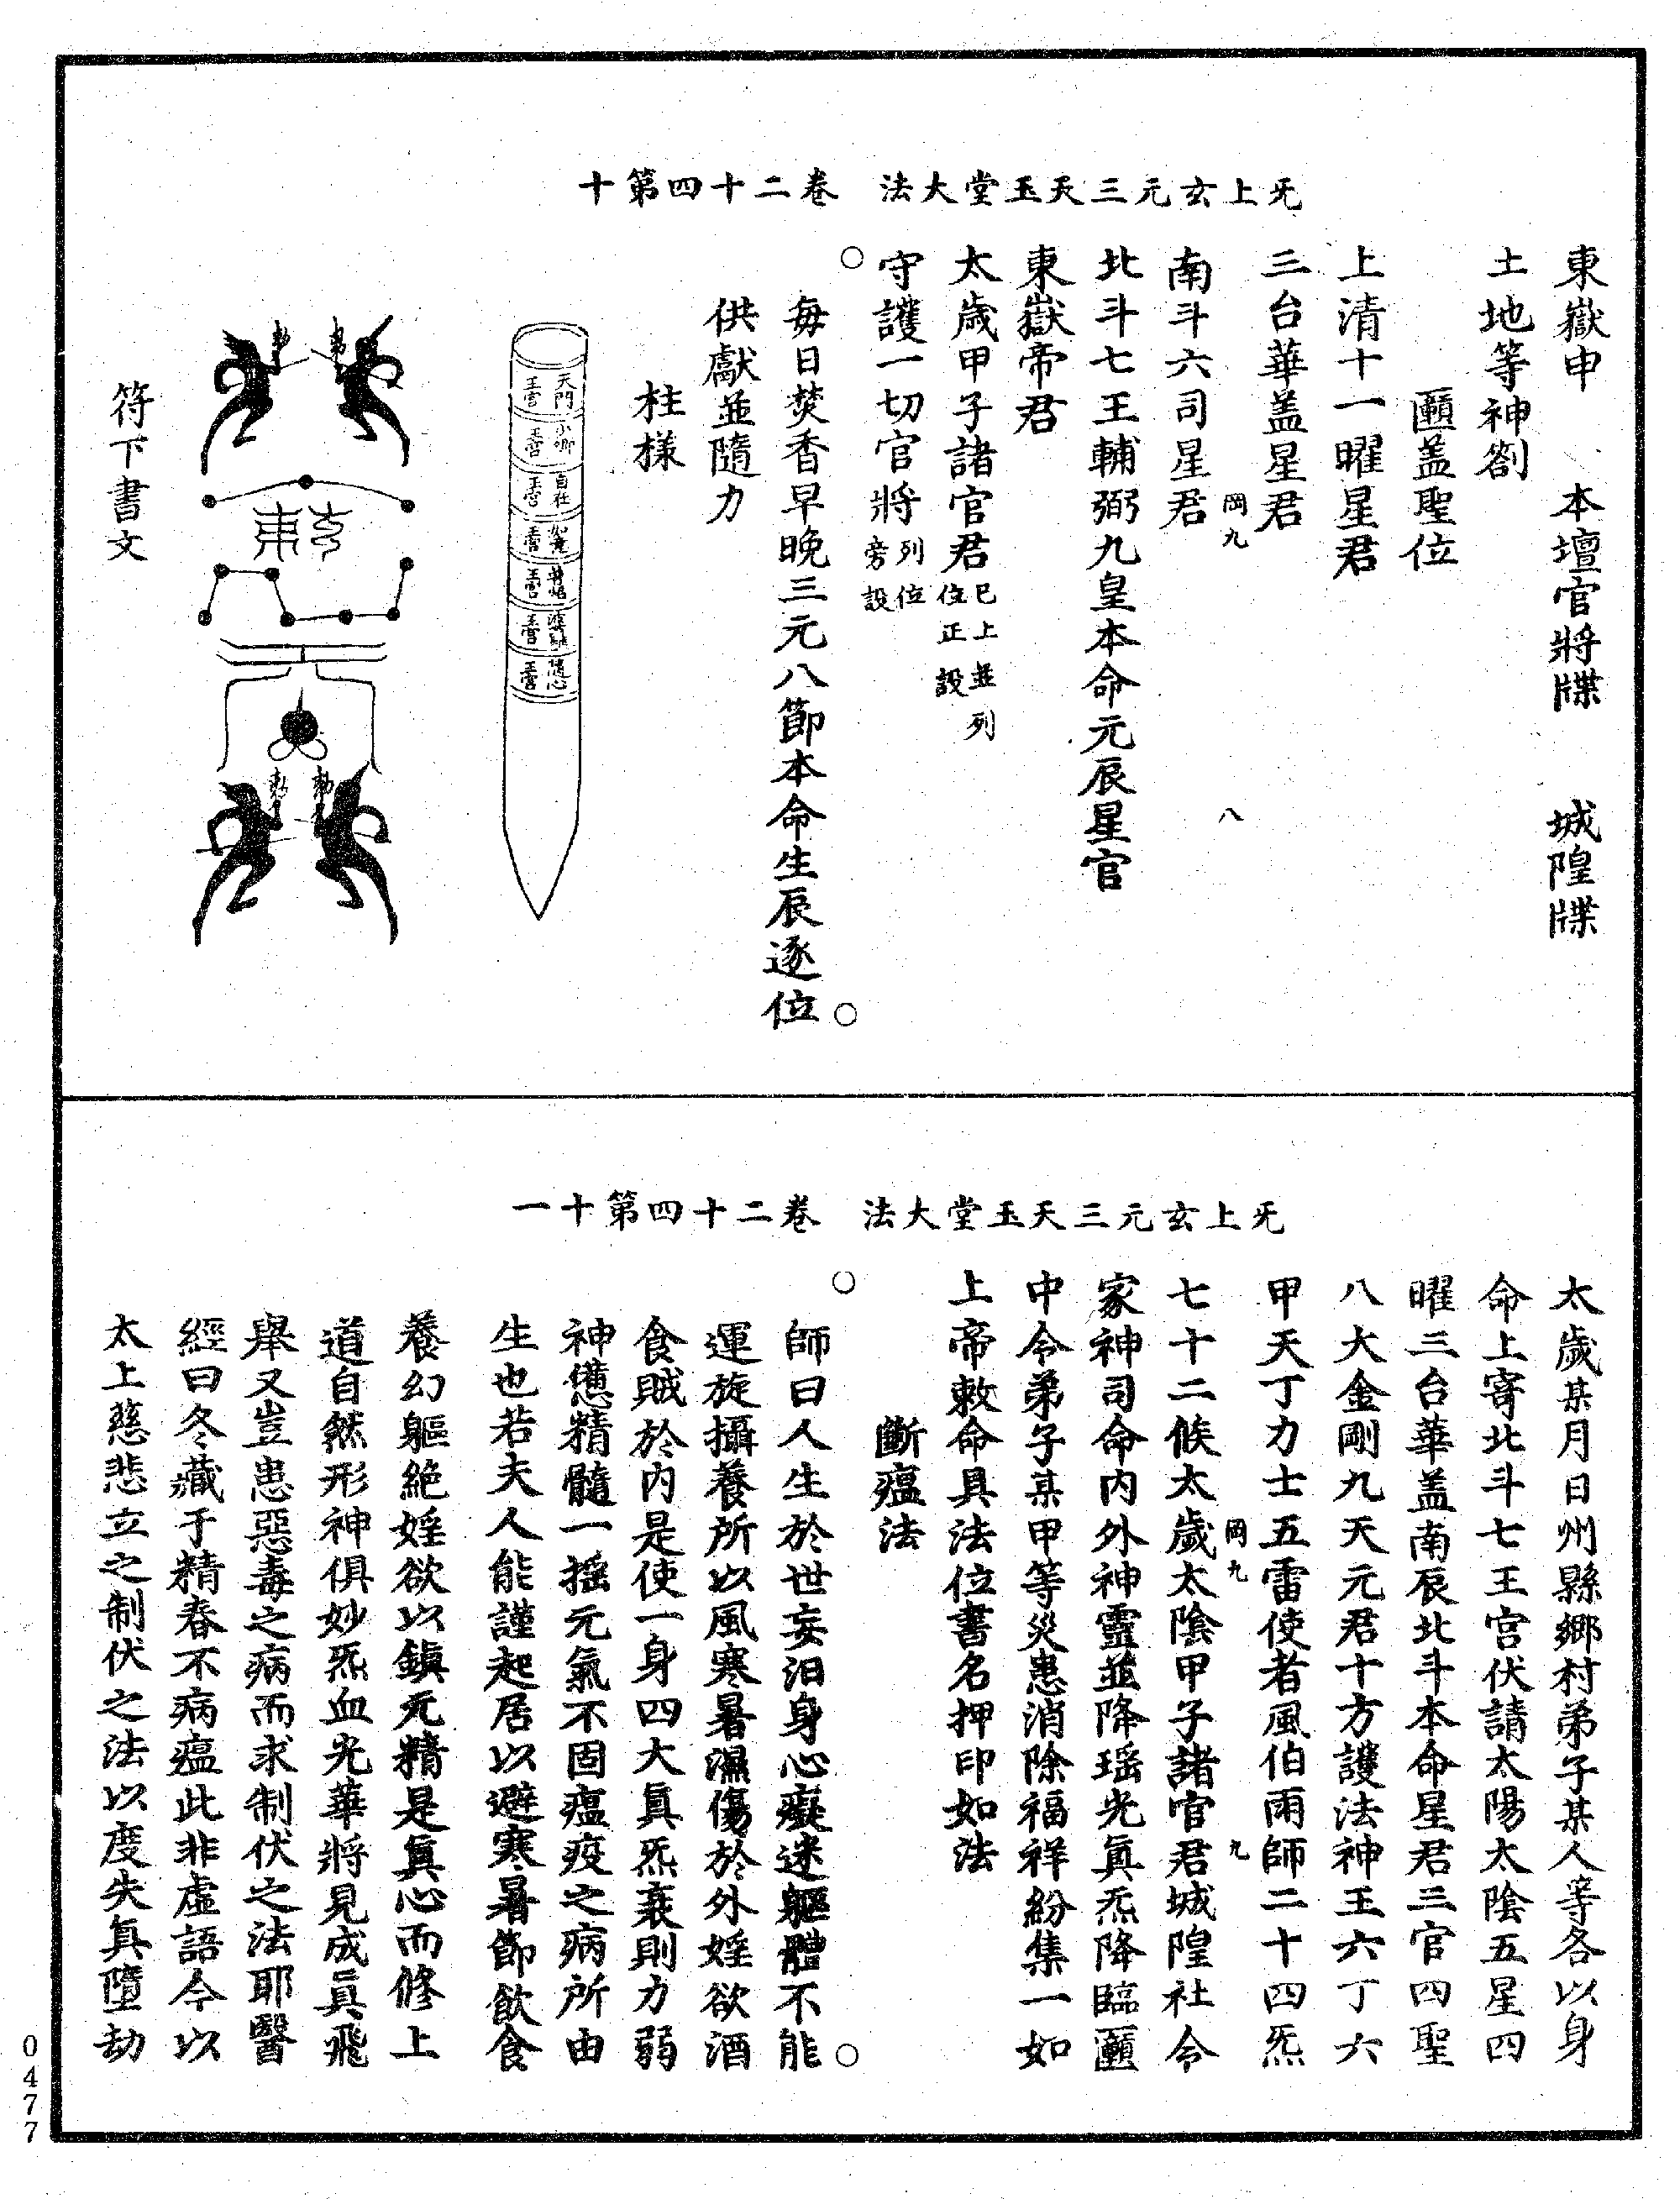 无上玄元三天玉堂大法　卷二十四第十
東嶽申　本壇官將牒　城隍牒
土地等神劄
匾盖聖位
上清十一曜星君
三台華盖星君
岡九
八
南斗六司星君
北斗七王輔弼九皇本命元辰星官
東嶽帝君
太歲甲子諸官君已上並列位正設
守護一切官將列位旁設
每日焚香早晚三元八節本命生辰逐位
供獻並隨力
柱樣
天門王宫
王宫
王宫
王宫
王宫
王宫
隨心王宫
敕
敕
敕
敕
符下書文
无上玄元三天玉堂大法　卷二十四第十一
太歲某月日州縣鄉村弟子某人等各以身
命上寄北斗七王宫伏請太陽太陰五星四
曜三台華盖南辰北斗本命星君三官四聖
八大金剛九天元君十方護法神王六丁六
甲天丁力士五雷使者風伯雨師二十四炁
岡九
九
七十二候太歲太陰甲子諸官君城隍社令
家神司命内外神靈並降瑶光真炁降臨匾
中令弟子某甲等災患消除福祥紛集一如
上帝敕命具法位書名押印如法
斷瘟法
師曰人生於世妄汩身心癡迷軀體不能
運旋攝養所以風寒暑濕傷於外婬欲酒
食賊於内是使一身四大真炁衰則力弱
神憊精髓一摇元氣不固瘟疫之病所由
生也若夫人能謹起居以避寒暑節飲食
養幻軀絶婬欲以鎮元精是真心而修上
道自然形神俱妙炁血光華將見成真飛
舉又豈患惡毒之病而求制伏之法耶醫
經曰冬藏于精春不病瘟此非虚語今以
太上慈悲立之制伏之法以度失真墮劫
0477